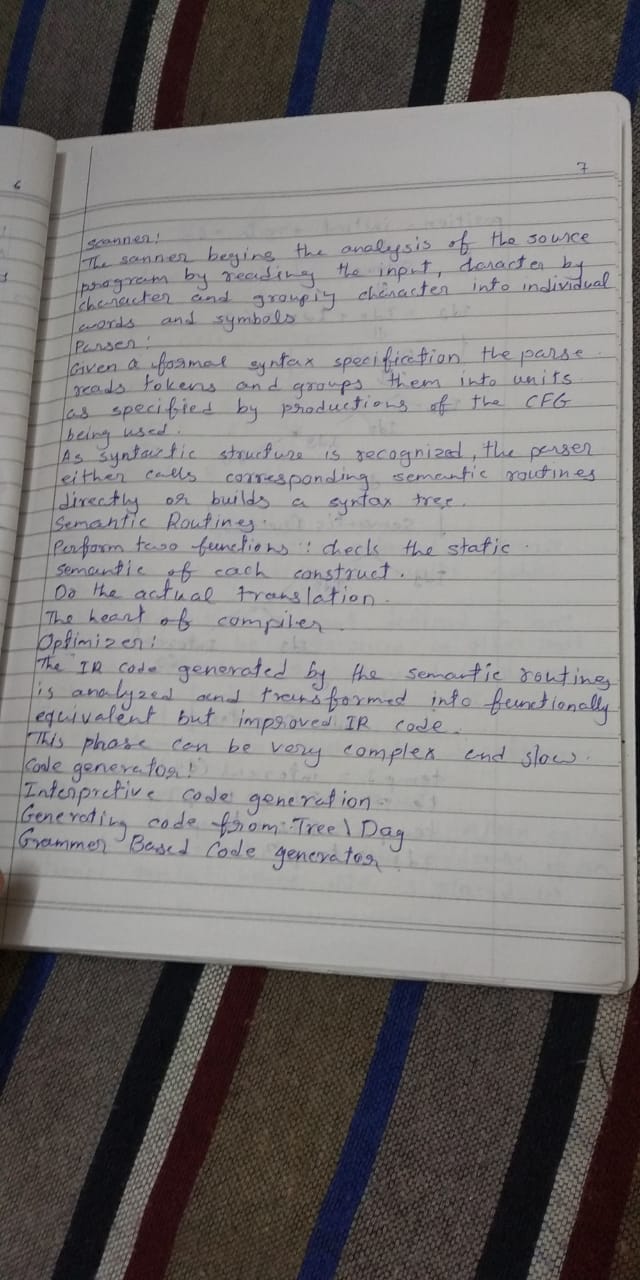 7
6
scanner:
The sanner begins the analysis of the source
program by reading the input, character by
character and groupiy character into individual
words and symbols
Parser:
Given a formal syntax specification the parse
reads tokens and groups them into units
as specified by productions of the CFG
being used.
As syntactic structure is recognized, the parser
either calls corresponding semantic routines
directly or builds a syntax tree.
Semantic Routines.
Perform two functions: check the static
semantic of each construct.
Do the actual translation.
The heart of compiler.
Optimizer:
The IR code generated by the semantic routines
is analyzed and transformed into functionally
equivalent but improved IR code.
This phase can be very complex and slow.
Code generator:
Interprtive code generation.
Generating code from Tree\Dag
Grammer Based Code generator.